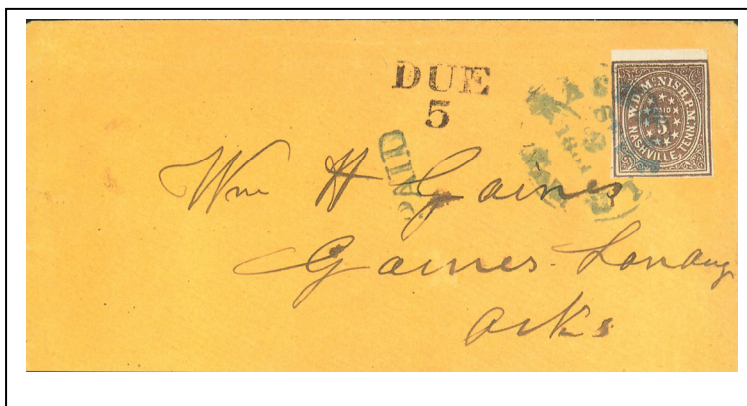 DUE
5
PAID
W.D. McNISH. P.M.
PAID
5
NASHVILLE, TENN.
Wm H Gaines
Gaines. Landing
Arks